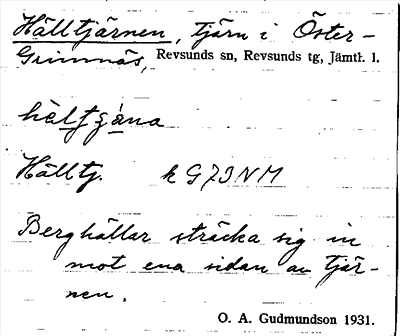 Hälltjärnen, tjärn i Öster-
Grimnäs, Revsunds sn, Revsunds tg, Jämtl. l.
hèltjæ̀na
Hälltj. k G73NM
Berghällar sträcka sig in
mot ena sidan av tjär-
nen.
O. A. Gudmundson 1931.